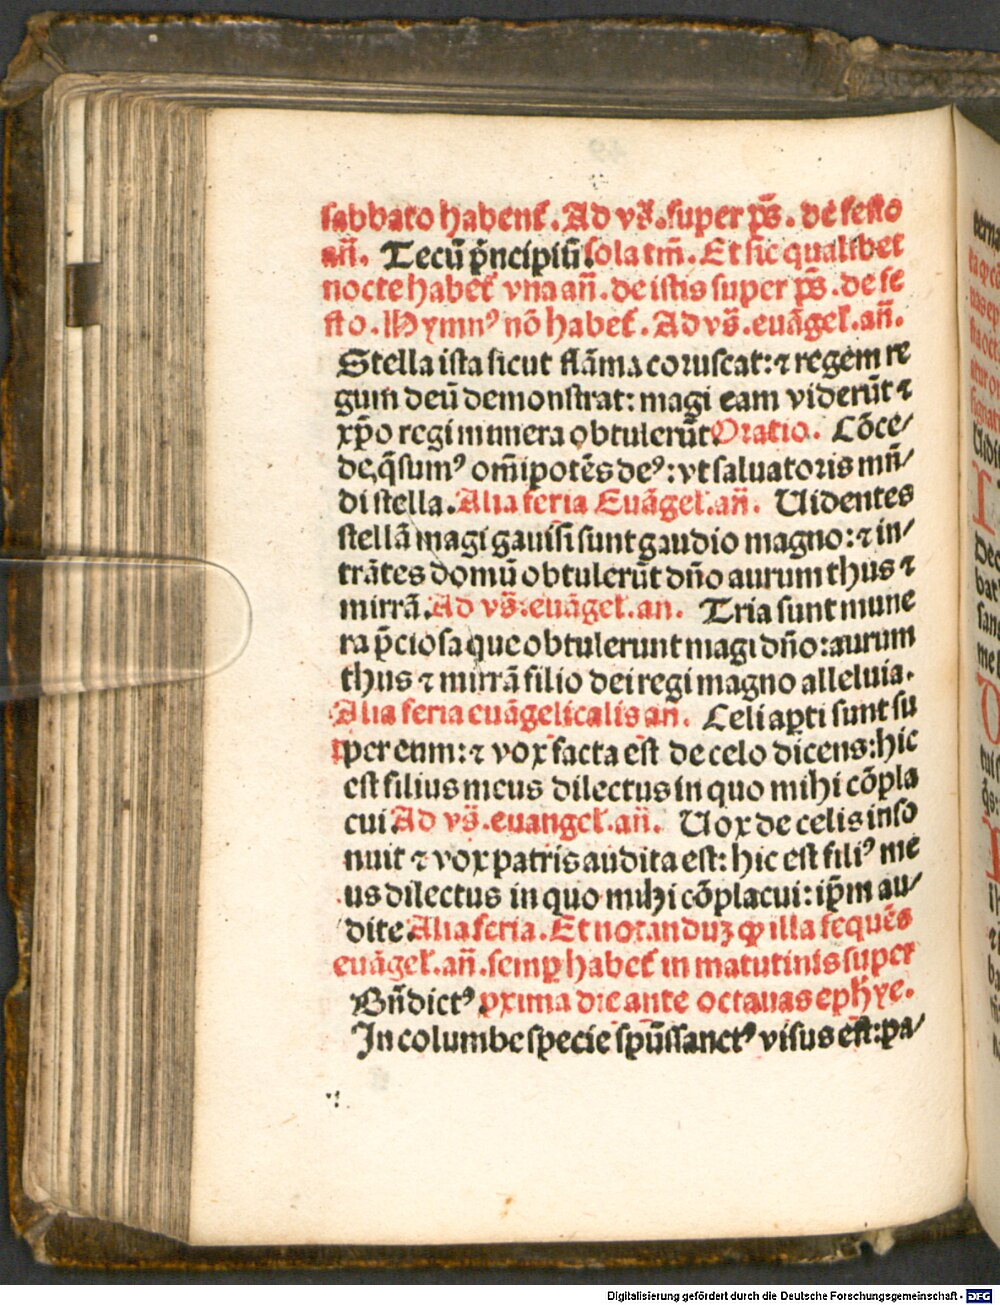 sabbato habent᷑. Ad vs̃. super ps̃. de festo
añ. Tecũ p̃ncipiũ. sola tm̃. Et sic qualibet
nocte habet᷑ vna añ. de istis super ps̃. de fe
sto. Hymnꝰ nõ habet᷑. Ad vs̃. euãgel̃. añ.
Stella ista sicut flãma coruscat: ⁊ regem re
gum deũ demonstrat: magi eam viderũt ⁊
xp̃o regi munera obtulerũt Oratio. Cõce/
de q̃sumꝰ om̃ipotẽs deꝰ: vt saluatoris mũ/
di stella. Alia feria Euãgel̃. añ. Uidentes
stellã magi gauisi sunt gaudio magno: ⁊ in/
trãtes domũ obtulerũt dño aurum thus ⁊
mirrã. Ad vs̃. euãgel̃. an. Tria sunt mune
ra p̃ciosa que obtulerunt magi dño: aurum
thus ⁊ mirrã filio dei regi magno alleluia.
Alia feria euãgelicalis añ. Celi apti sunt su
per eum: ⁊ vox facta est de celo dicens: hic
est filius meus dilectus in quo mihi cõpla
cui Ad vs̃. euangel̃. añ. Uox de celis inso
nuit ⁊ vox patris audita est: hic est filiꝰ me
us dilectus in quo mihi cõplacui: ip̃m au/
dite Alia feria. Et notanduꝫ ꝙ illa sequẽs
euãgel̃. añ. semꝑ habet᷑ in matutinis super
Bñdictꝰ. pxima die ante octauas ephye.
In columbe specie sp̃ussanctꝰ visus est: pa/
Digitalisierung gefördert durch die Deutsche Forschungsgemeinschaft - DFG